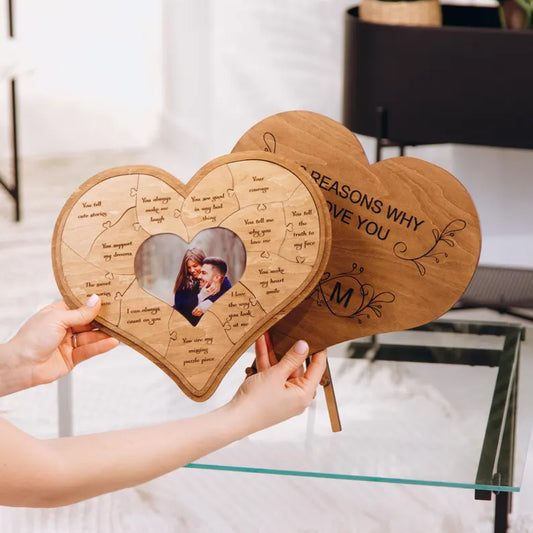 You tell
cute stories
You always
make me
laugh
You are good
in any bad
thing
Your
courage
You support
my dreams
You tell me
you
love me
You tell
the truth
to my face
The
I can always
count on you
You make
my heart
smile
I love
the way
you look
at me
You are my
missing
puzzle piece
REASONS WHY
OVE YOU
M